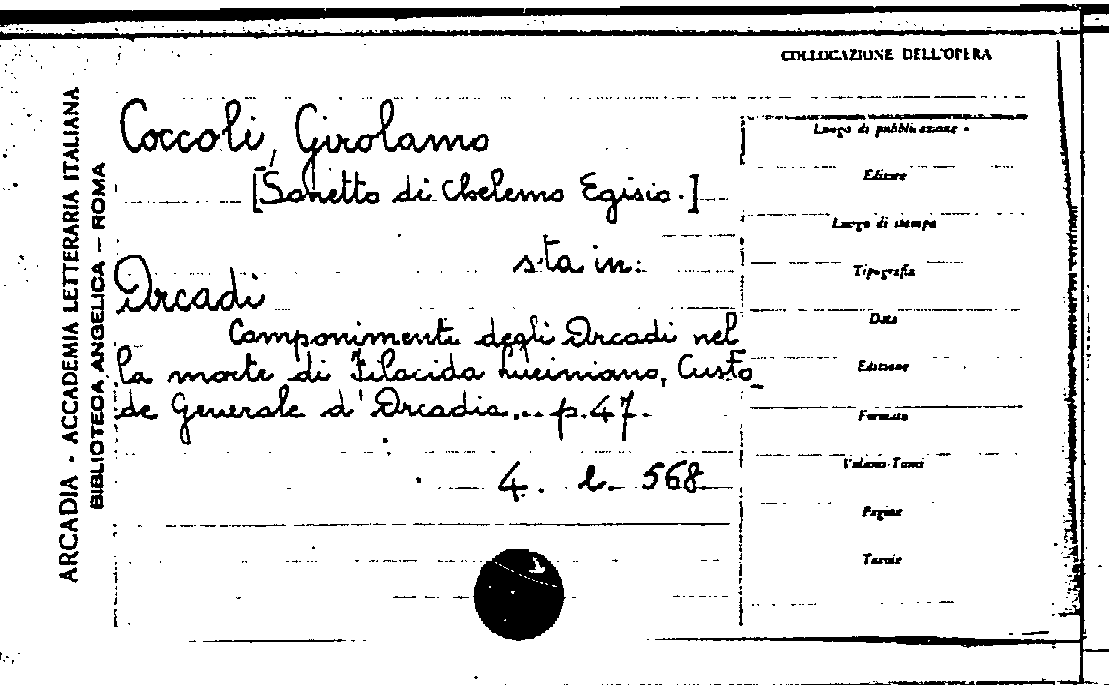 COLLOCAZIONE DELL'OPERA
ARCADIA - ACCADEMIA LETTERARIA ITALIANA
BIBLIOTECA ANGELICA – ROMA
Coccoli, Girolamo
[Sonetto di Chelemo Egisio.]
sta in:
Arcadi
Componimenti degli Arcadi nel
la morte di Filacida Luciniano, Custo_
de Generale d'Arcadia... p. 47.
4. l. 568
Luogo di pubblicazione
Editore
Luogo di stampa
Tipografia
Data
Edizione
Formato
Volume-Tomi
Pagine
Tavole